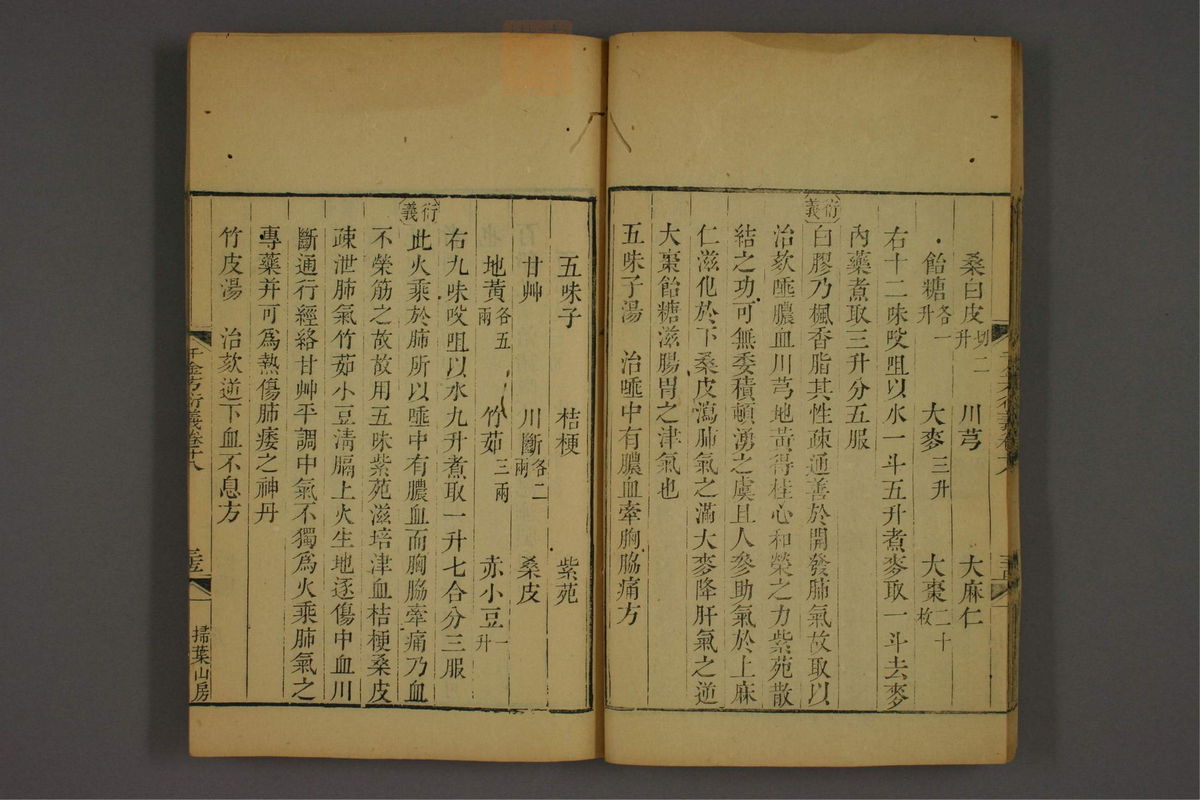 桑白皮切二升 川芎 大麻仁
飴糖各一升 大麥三升 大棗二十枚
右十二味㕮咀以水一斗五升煮麥取一斗去麥
內藥煮取三升分五服
衍義
白膠乃楓香脂其性疎通善於開發肺氣故取以
治欬唾膿血川芎地黃得桂心和榮之力紫苑散
結之功可無委積頓湧之虞且人參助氣於上麻
仁滋化於下桑皮瀉肺氣之滿大麥降肝氣之逆
大棗飴糖滋腸胃之津氣也
五味子湯 治唾中有膿血牽胸脇痛方
五味子 桔梗 紫苑
甘艸 川斷各二兩 桑皮
地黃各五兩 竹茹三兩 赤小豆一升
右九味㕮咀以水九升煮取一升七合分三服
衍義
此火乘於肺所以唾中有膿血而胸脇牽痛乃血
不榮筋之故故用五味紫苑滋培津血桔梗桑皮
疎泄肺氣竹茹小豆淸膈上火生地逐傷中血川
斷通行經絡甘艸平調中氣不獨爲火乘肺氣之
專藥幷可爲熱傷肺痿之神丹
竹皮湯 治欬逆下血不息方
千金方衍義卷十八
掃葉山房